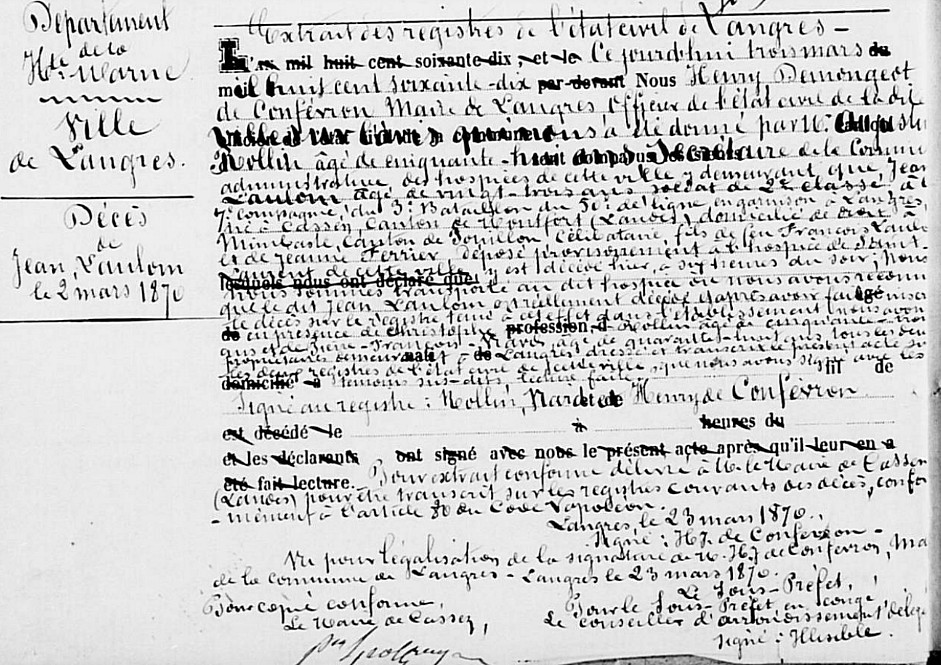 Département
de la
Hte Marne
Ville
de Langres.
Décès
de
Jean, Laulom
le 2 mars 1870
Extrait des registres de l'état civil de Langres -
L'an mil huit cent soixante-dix, et le Ce jourd'hui trois mars du
mil huit cent soixante-dix par-devant Nous Henry Demongeot
de Confévron Maire de Langres Officier de l'état civil de la dite
Ville a été donné par M.
Rollin âgé de cinquante-huit ans Secrétaire de la Comm
administrative des hospices de cette ville y demeurant, que, Jean
Laulom âgé de vingt-trois ans soldat de 2e classe, à l
7e compagnie, du 3e Bataillon du 50e de ligne en garnison à Langres,
né à Cassen, Canton de Montfort (Landes) domicilié de droit à
Mimbaste, Canton de Pouillon, célibataire fils de feu François Laulo
et de Jeanne Ferrier, déposé provisoirement à l'hospice de Saint-
Laurent de cette ville y est décédé hier, à sept heures du soir; Nous
lesquels nous ont déclaré que
nous sommes transporté au dit hospice où nous avons reconnu
que le dit Jean Laulom est réellement décédé et après avoir fait âgé
le décès sur le registre tenu à cet effet dans l'établissement, nous avons
de en présence de Christophe profession d Rollin âgé de cinquante-
ans et de Pierre-François Nardet âgé de quarante-huit ans, tous les deux
propriétaires demeurant à Langres dressé et transcrit le présent acte sur
les deux registres de l'état civil de cette ville, que nous avons signé avec les
domicilié à témoins sus-dits, lecture faite. fil de
Signé au registre: Rollin, Nardet et de Henry de Confévron
est décédé le à heures du
et les déclarants ont signé avec nous le présent acte après qu'il leur en a
été fait lecture. Pour extrait conforme délivré à M. le Maire de Cassen
(Landes) pour être transcrit sur les registres courants des décès, confor
-mément à l'article 80 du Code Napoléon.
Langres, le 23 mars 1870.
Signé: Hy. de Confévron -
Vu pour légalisation de la signature de M. Hy de Confévron, Ma
de la commune de Langres - Langres le 23 mars 1870.
Le Sous-Préfet,
Pour le Sous-Préfet en congé,
Pour copie conforme, Le conseiller d'arrondissement délégué
Le Maire de Cassen, signé: Illisible.